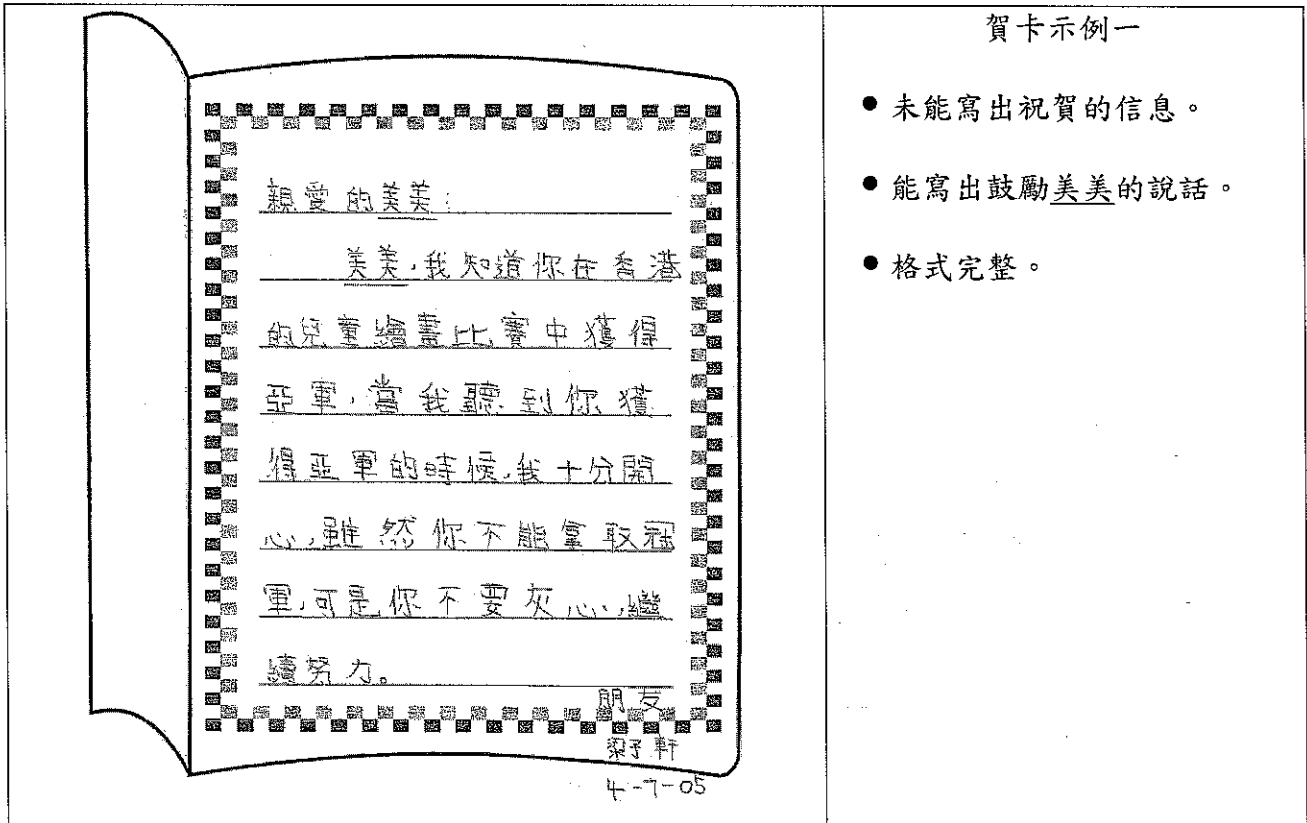 親愛的美美：
美美，我知道你在香港
的兒童繪畫比賽中獲得
亞軍，當我聽到你獲
得亞軍的時候，我十分開
心，雖然你不能拿取冠
軍，可是你不要灰心，繼
續努力。
朋友
梁子軒
4-7-05
賀卡示例一
● 未能寫出祝賀的信息。
● 能寫出鼓勵美美的說話。
● 格式完整。